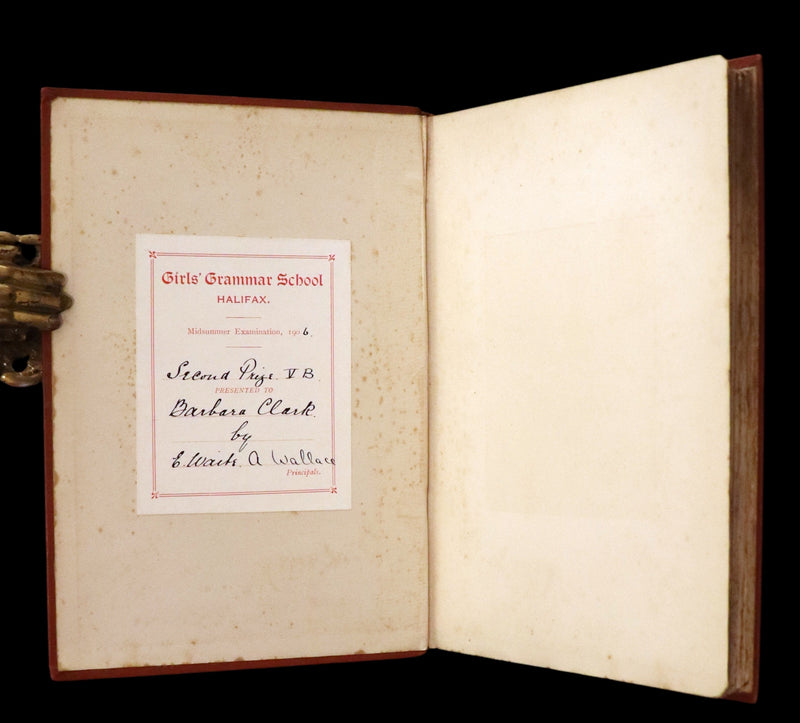 Girls' Grammar School
HALIFAX.
Midsummer Examination, 1906.
Second Prize. V B.
PRESENTED TO
Barbara Clark.
by
E. Waite. A Wallace
Principals.